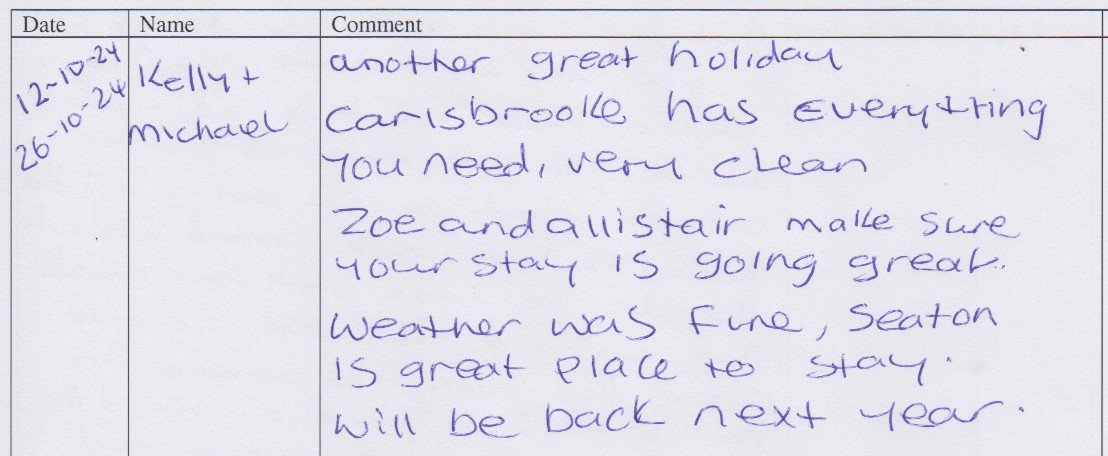 Date Name Comment
12-10-24
26-10-24
Kelly +
Michael
another great holiday
Carisbrooke has everything
you need, very clean
Zoe and allistair make sure
your stay is going great.
Weather was fine, Seaton
is great place to stay.
will be back next year.